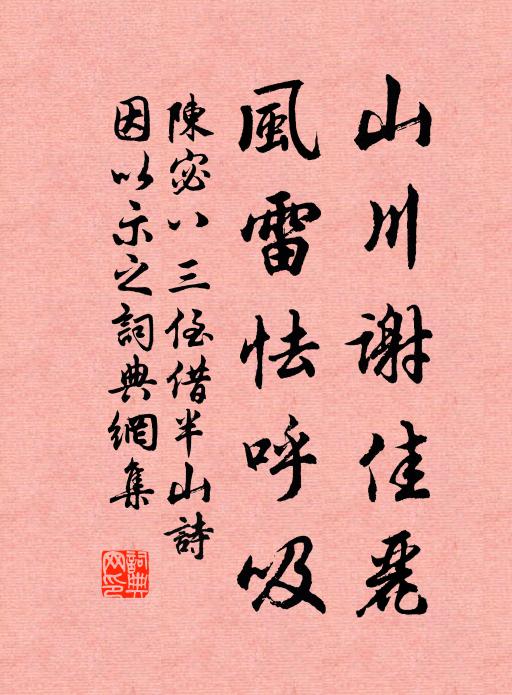 山川謝佳麗
風雷怯呼吸
陳宓八三侄借半山詩
因以示之詞典網集
詞典网印